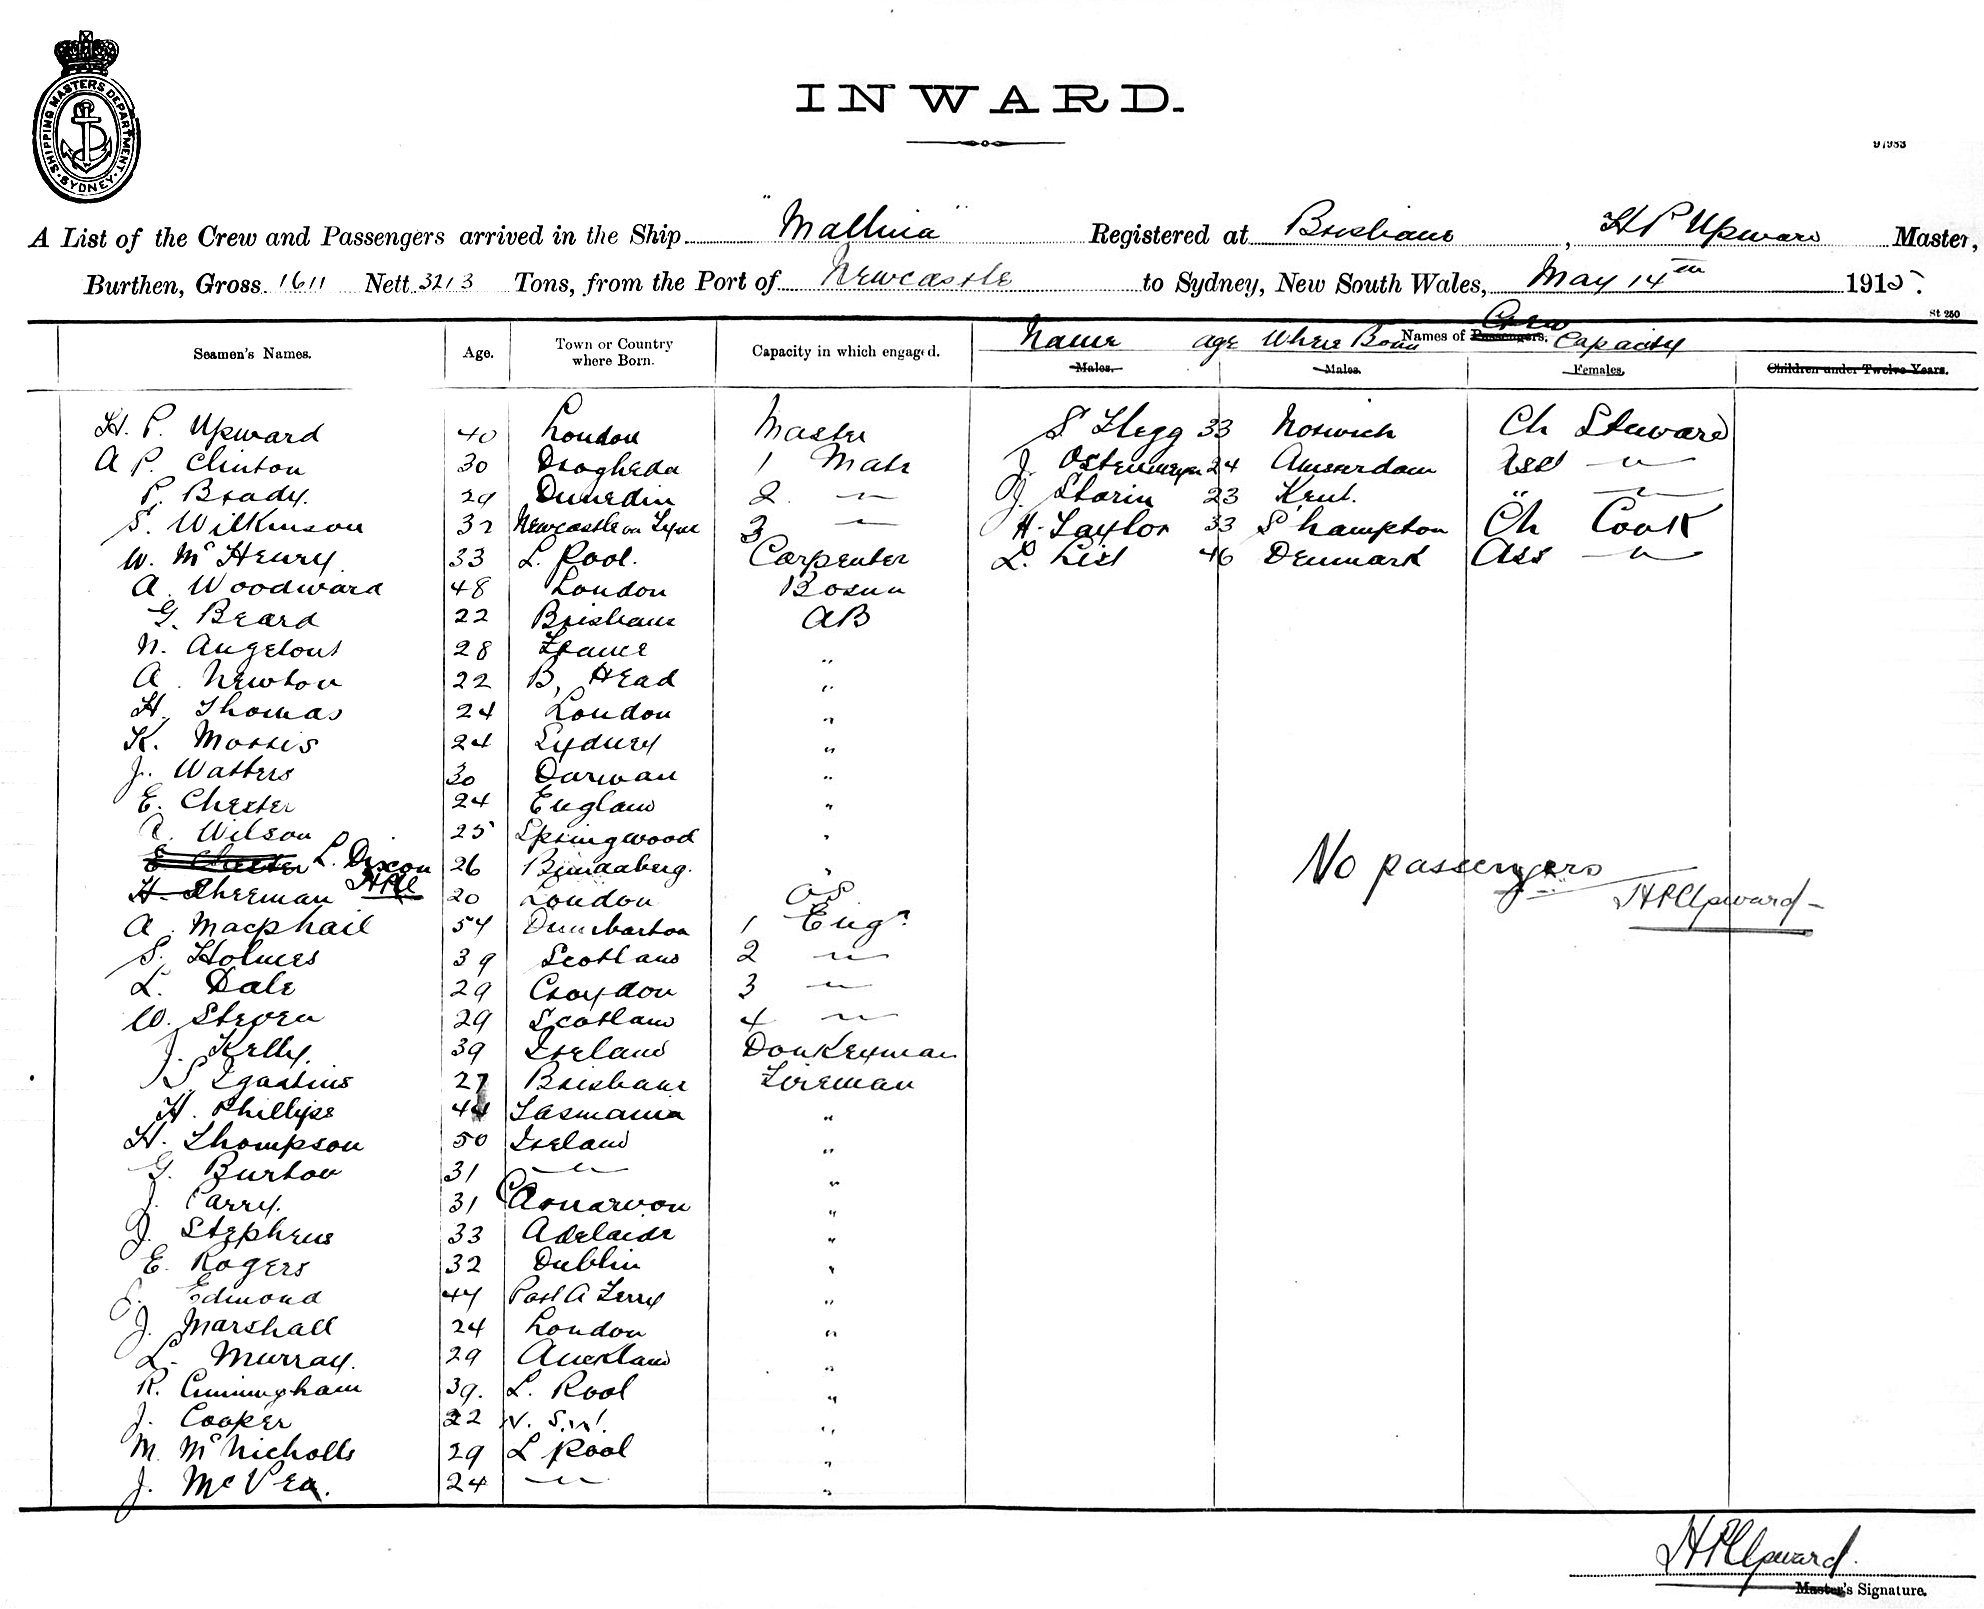 SHIPPING MASTERS DEPARTMENT. SYDNEY.
INWARD.
91983
A List of the Crew and Passengers arrived in the Ship "Mallina" Registered at Brisbane, H P Upward Master,
Burthen, Gross 1611 Nett 3213 Tons, from the Port of Newcastle to Sydney, New South Wales, May 14th 1915.
St 250
Seamen's Names. Age. Town or Country where Born. Capacity in which engaged. Names of Passengers. Crew
Name age Where Born Capacity
Males. Males. Females. Children under Twelve Years.
H. P. Upward 40 London Master S Flegg 33 Norwich Ch Steward
A P. Clinton 30 Drogheda 1 Mate J. 24 Amserdam 2nd "
P. Brady. 29 Dunedin 2. " J. Storin 23 Kent. " "
S. Wilkinson 32 Newcastle on Tyne 3 " H. Taylor 33 S'hampton Ch Cook
W. McHenry. 33 L. Pool. Carpenter L. List 46 Denmark Ass "
A. Woodward 48 London Bosun
G. Beard 22 Brisbane AB
N. Angelous 28 France "
A. Newton 22 B, Head "
H. Thomas 24 London "
K. Morris 24 Sydney "
J. Watters 30 Darwan "
E. Chester 24 England "
Wilson 25 Springwood "
E Chester L. Dixon 26 Bundaberg. "
H. Sherman HPU 20 London OS
A. Macphail 54 Dumbarton 1 Engr
S. Holmes 39 Scotland 2 "
L. Dale 29 Croydon 3 "
W. Steven 29 Scotland 4 "
J. Kelly. 39 Ireland Donkeyman
S. Igantius 27 Brisbane Fireman
H. Phillips 44 Tasmania "
H. Thompson 50 Ireland "
G. Burton 31 " "
J. Parry. 31 Carnarvon "
J. Stephens 33 Adelaide "
E. Rogers 32 Dublin "
J. Edmond 44 Port A Ferry "
J. Marshall 24 London "
L. Murray. 29 Auckland "
R. Cunningham 39. L. Pool "
J. Cooper 22 N. S.W. "
M. McNicholls 29 L Pool "
J. McVea. 24 " "
No passengers
HPUpward
HPUpward.
Master's Signature.